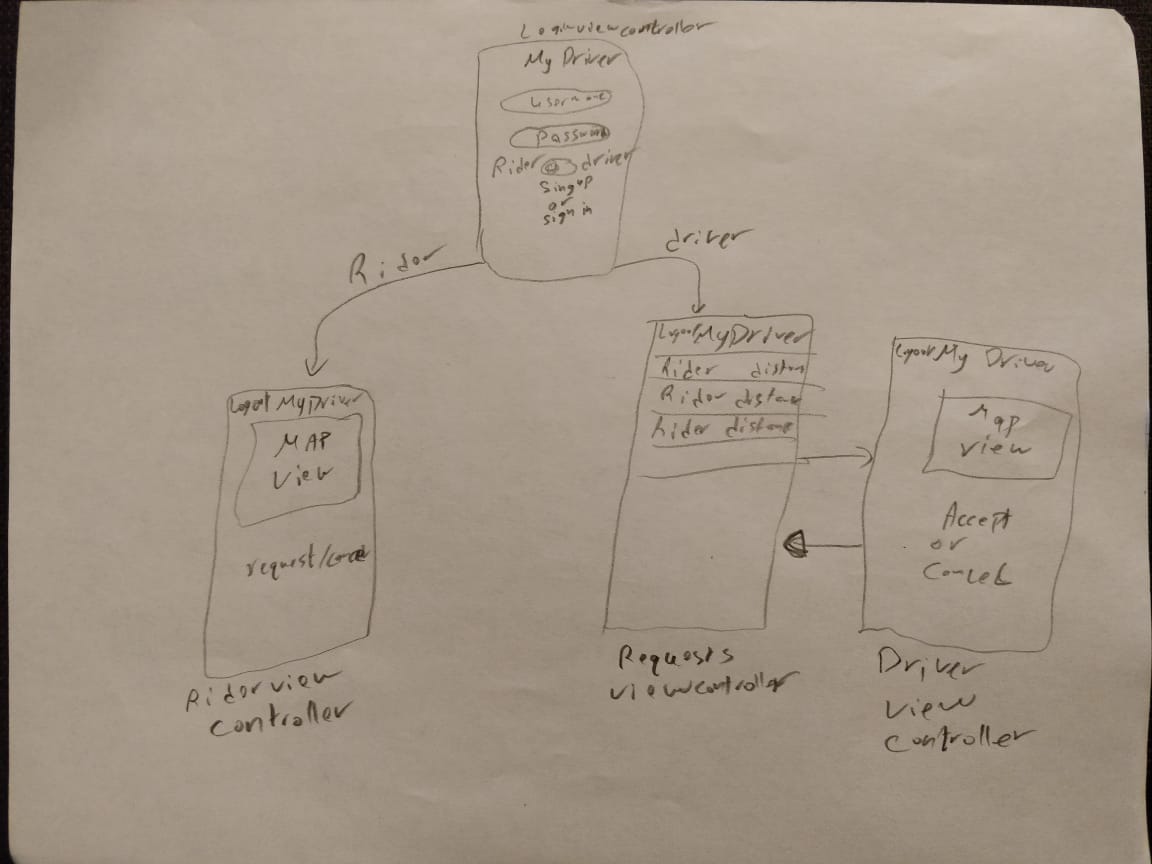 Loginviewcontroller
My Driver
username
Password
Rider driver
Singup
or
sign in
Rider
driver
Logout My Driver
MAP
View
request/cancel
Rider view
controller
Logout My Driver
Rider distance
Rider distance
Rider distance
Requests
viewcontroller
Logout My Driver
Map
view
Accept
or
Cancel
Driver
view
controller